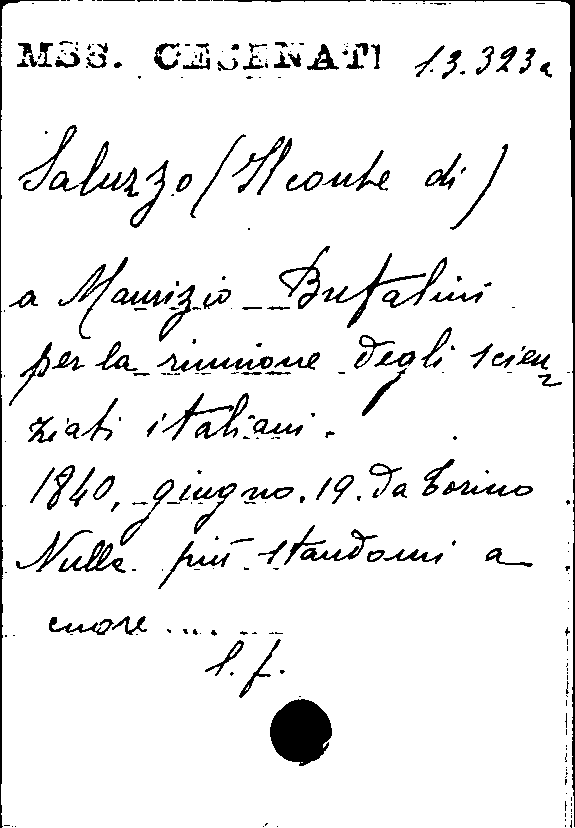 MSS. CESENATI 1.3.323a
Saluzzo (Il conte di)
a Maurizio Bufalini
per la riunione degli scien
ziati italiani.
1840, giugno. 19. da Torino
Nulla più standomi a
cuore....
l. f.